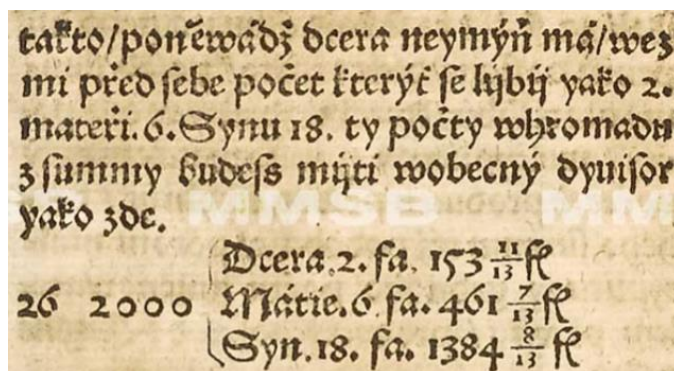 takto/poněwádž dcera neymýň má/wez
mi před sebe počet kterýť se lijbij yako 2.
mateři. 6. Synu 18. ty počty whromadu
z summy budess mijti wobecný dyuisor
yako zde.
Dcera. 2. fa. 153 11/13 fl
26 2000 Mátie. 6 fa. 461 7/13 fl
Syn. 18. fa. 1384 8/13 fl
MMSB